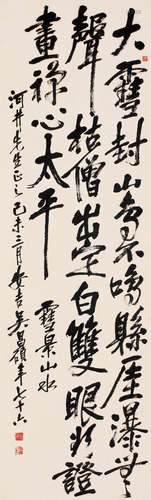 大雪封山鳥不鳴縣厓瀑無
聲枯僧出定白雙眼證
畫禪心太平
雪景山水
河井先生正之己未三月安吉吳昌碩年七十六